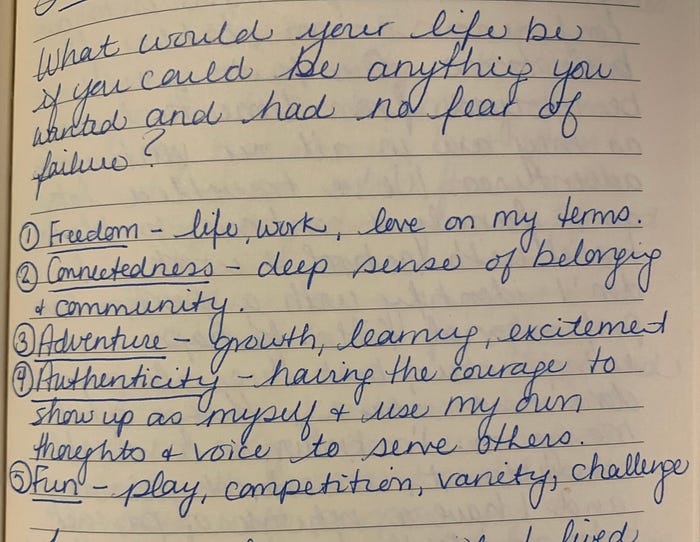 What would your life be
if you could be anything you
wanted and had no fear of
failure?
① Freedom - life, work, love on my terms.
② Connectedness - deep sense of belonging
& community.
③ Adventure - growth, learning, excitement
④ Authenticity - having the courage to
show up as myself & use my own
thoughts & voice to serve others.
⑤ Fun - play, competition, vanity, challenge
lived